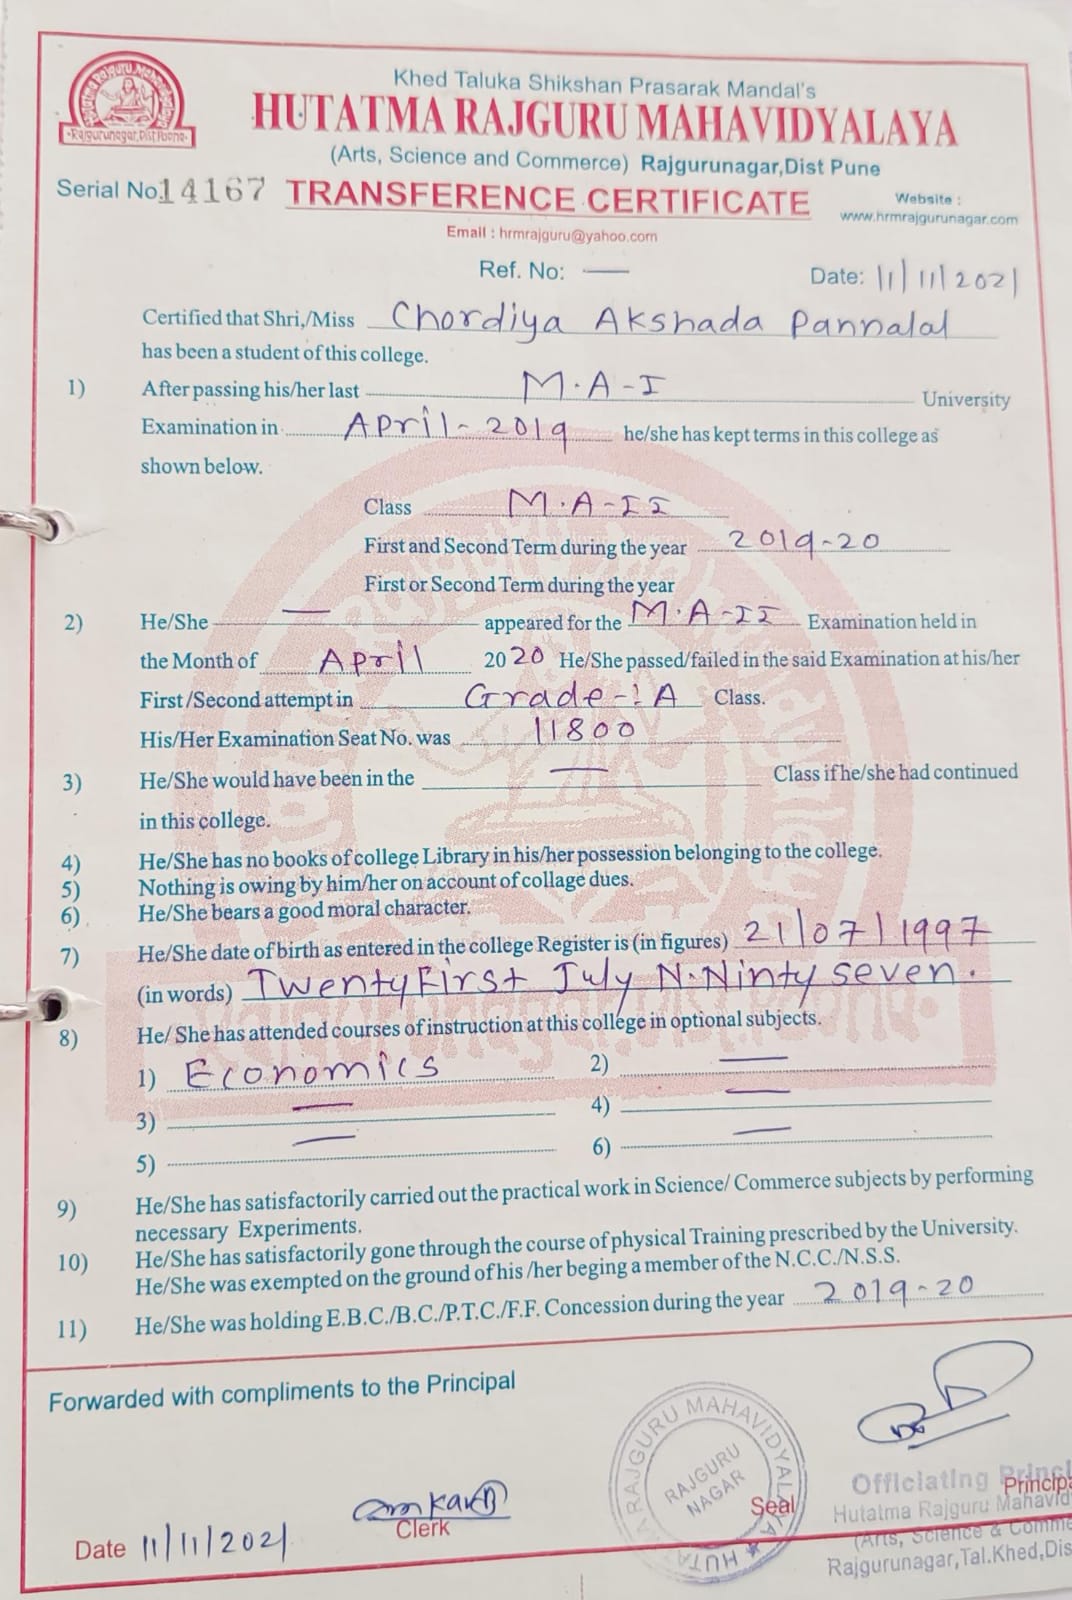 Khed Taluka Shikshan Prasarak Mandal's
HUTATMA RAJGURU MAHAVIDYALAYA
(Arts, Science and Commerce) Rajgurunagar,Dist Pune
-Rajgurunagar,Dist.Poona-
Serial No.14167 TRANSFERENCE CERTIFICATE
Website :
www.hrmrajgurunagar.com
Email : hrmrajguru@yahoo.com
Ref. No: — Date: 11/11/2021
Certified that Shri,/Miss Chordiya Akshada Pannalal
has been a student of this college.
1) After passing his/her last M.A-I University
Examination in April-2019 he/she has kept terms in this college as
shown below.
Class M.A-II
First and Second Term during the year 2019-20
First or Second Term during the year
2) He/She — appeared for the M.A-II Examination held in
the Month of April 2020 He/She passed/failed in the said Examination at his/her
First/Second attempt in Grade-:A Class.
His/Her Examination Seat No. was 11800
3) He/She would have been in the — Class if he/she had continued
in this college.
4) He/She has no books of college Library in his/her possession belonging to the college.
5) Nothing is owing by him/her on account of collage dues.
6) He/She bears a good moral character.
7) He/She date of birth as entered in the college Register is (in figures) 21/07/1997
(in words) Twenty First July N.Ninty seven.
8) He/ She has attended courses of instruction at this college in optional subjects.
1) Economics 2) —
3) — 4) —
5) — 6) —
9) He/She has satisfactorily carried out the practical work in Science/ Commerce subjects by performing
necessary Experiments.
10) He/She has satisfactorily gone through the course of physical Training prescribed by the University.
He/She was exempted on the ground of his /her beging a member of the N.C.C./N.S.S.
11) He/She was holding E.B.C./B.C./P.T.C./F.F. Concession during the year 2019-20
Forwarded with compliments to the Principal
RAJGURU MAHAVIDYALAYA
RAJGURU
NAGAR
Seal
Officiating Princi
Principa
Hutatma Rajguru Mahavid
(Arts, Science & Comme
Rajgurunagar,Tal.Khed,Dis
Clerk
Date 11/11/2021